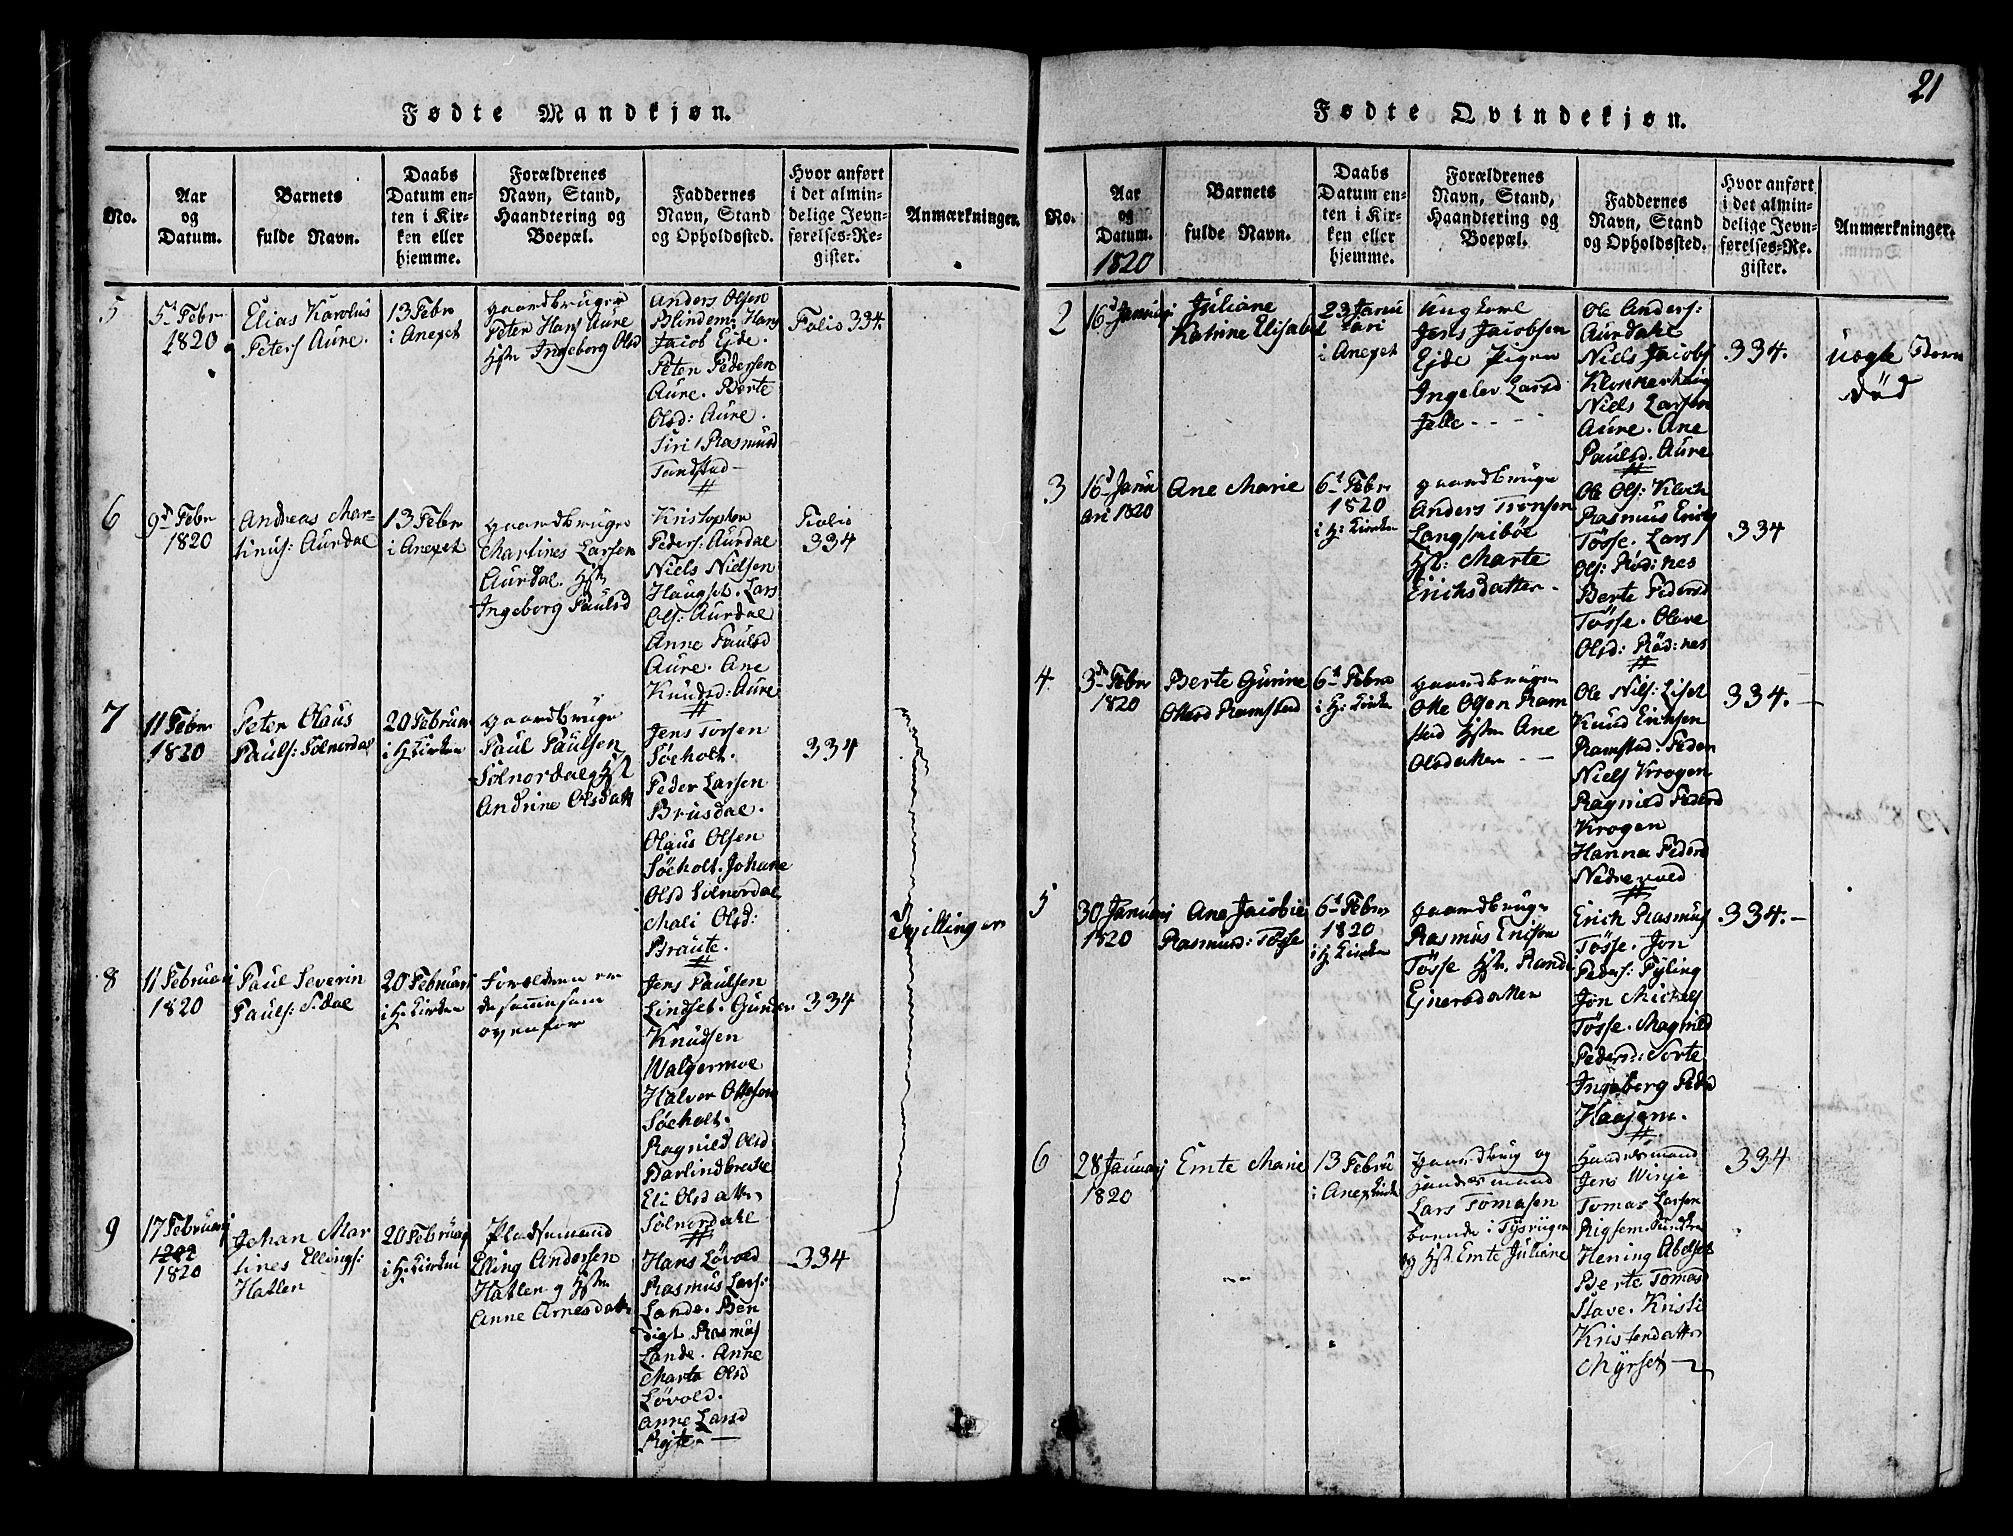 21
Fødte Mandkjøn.
No.
Aar
og
Datum.
Barnets
fulde Navn.
Daabs
Datum en-
ten i Kir-
ken eller
hjemme.
Forældrenes
Navn, Stand,
Haandtering og
Boepæl.
Faddernes
Navn, Stand
og Opholdssted.
Hvor anført
i det almin-
delige Jevn-
førelses-Re-
gister.
Anmærkninger.
5
5d Febr
1820
Elias Karolus
Peters Aure.
13 Febr
i Anexet
gaardbruger
Peter Hans Aure
Hst Ingeborg Olsd
Anders Olsen
Blindem: Hans
Jacob Ejde.
Peter Pedersen
Aure. Berte
Olsd: Aure.
Siri Rasmusd
Tandstad
Folio 334.
6
9d Febr
1820
Andreas Mar-
tinus: Aurdal
13 Febr
i Anexet
gaardbruger
Martines Larsen
Aurdal. Hstr
Ingeborg Paulsd
Kristopher
Peders: Aurdal
Niels Nielsen
Haugset. Lars
Ols: Aurdal
Anne Paulsd
Aure. Ane
Knudsd: Aure
Folio
334
7
11 Febr
1820
Peter Olaus
Pauls: Solnordal
20 Februari
i H: Kirken
gaardbruge
Paul Paulsen
Solnordal og Hst
Andrine Olsdatt
Jens Torsen
Søeholt.
Peder Larsen
Brusdal.
Olaus Olsen
Søeholt. Johane
Olsd Solnordal
Mali Olsd:
Braute.
334
Tvillinger
8
11 Februari
1820
Paul Severin
Pauls: S:dal
20 Februari
i H: Kirken
Foreldren er
de samme som
ovenfor
Jens Paulsen
Lindset. Gunder
Knudsen
Walgermoe
Halvor Ottesen
Søeholt.
Ragnild Olsd
Eli Olsdatter
Solnordahl
334
9
17 Februarj
1820
Johan Mar
tines Ellings:
Hatlen
20 Februarj
i H: Kirken
Pladsemand
Elling Andersen
Hatlen og Hstr
Anne Arnesdatt
Hans Løvold
Rasmus Lars:
Lande. Ben
digt Rasmus
Lande. Anne
Marta Olsd
Løvold.
Anne Larsd
334
Fødte Qvindekjøn.
No.
Aar
og
Datum.
1820
Barnets
fulde Navn.
Daabs
Datum en-
ten i Kir-
ken eller
hjemme.
Forældrenes
Navn, Stand,
Haandtering og
Boepæl.
Faddernes
Navn, Stand
og Opholdssted.
Hvor anført
i det almin-
delige Jevn-
førelses-Re-
gister.
Anmærkninger.
2
16d Januarj
Juliane
Katrine Elisabet
23 Janu
ari
i Anexet
Ungkarl
Jens Jacobsen
Ejde Pigen
Ingelev Larsd
Ole Anders:
Aurdahl
Niels Jacobs
Niels Larsen
Aure. Ane
Paulsd. Aure
334.
Uægte Born
Død
3
16d Janu
ari 1820
Ane Marie
6d Febr
1820
i H: Kirken
gaardbruge
Anders Tronsen
Langsnibøe
Hst: Marte
Erichsdatter
Ole Ols: Kloch
Rasmus Erichs
Tøsse. Lars
Ols: Rød:nes
Berte Pedersd
Tøsse. Olave
Olsd: Rød:nes
334
4
3de Febr
1820
Berte Gurine
Ottesd Ramstad
6d Febr
i H: Kirken
gaardbruger
Otte Olsen Ram
stad Hstr Ane
Olsdatter
Ole Nils: Liset
Knud Erichsen
Ramstad. Peder
Niels Krogen
Ragnild Pedersd
Krogen
Hanna Pedersd
Nedrevold
334.
5
30 Januarj
1820
Ane Jacobie
Rasmusd: Tøsse
6d Febr
1820
i H: Kirken
gaardbruge
Rasmus Ericsen
Tøsse Hstr. Rande
Ejnersdatter
Erich Rasmus
Tøsse. Jon
Peders: Pyling
Jon Michels
Tøsse. Magnild
Pedersd: Sorte
Ingeborg Peders
Haasem.
334.
6
28 Januarj
1820
Emte Marie
13 Febru
i Anex Kirke
gaardbrug og
Handtmand
Lars Tomasen
boende i Tysvigen
og Hst Emte Juliane
Handtmand
Jens Winje
Tomas Larsen
Hening Abelset
Berte Tomasd
Stave. Kristi
Kristendatter
Myrset
334